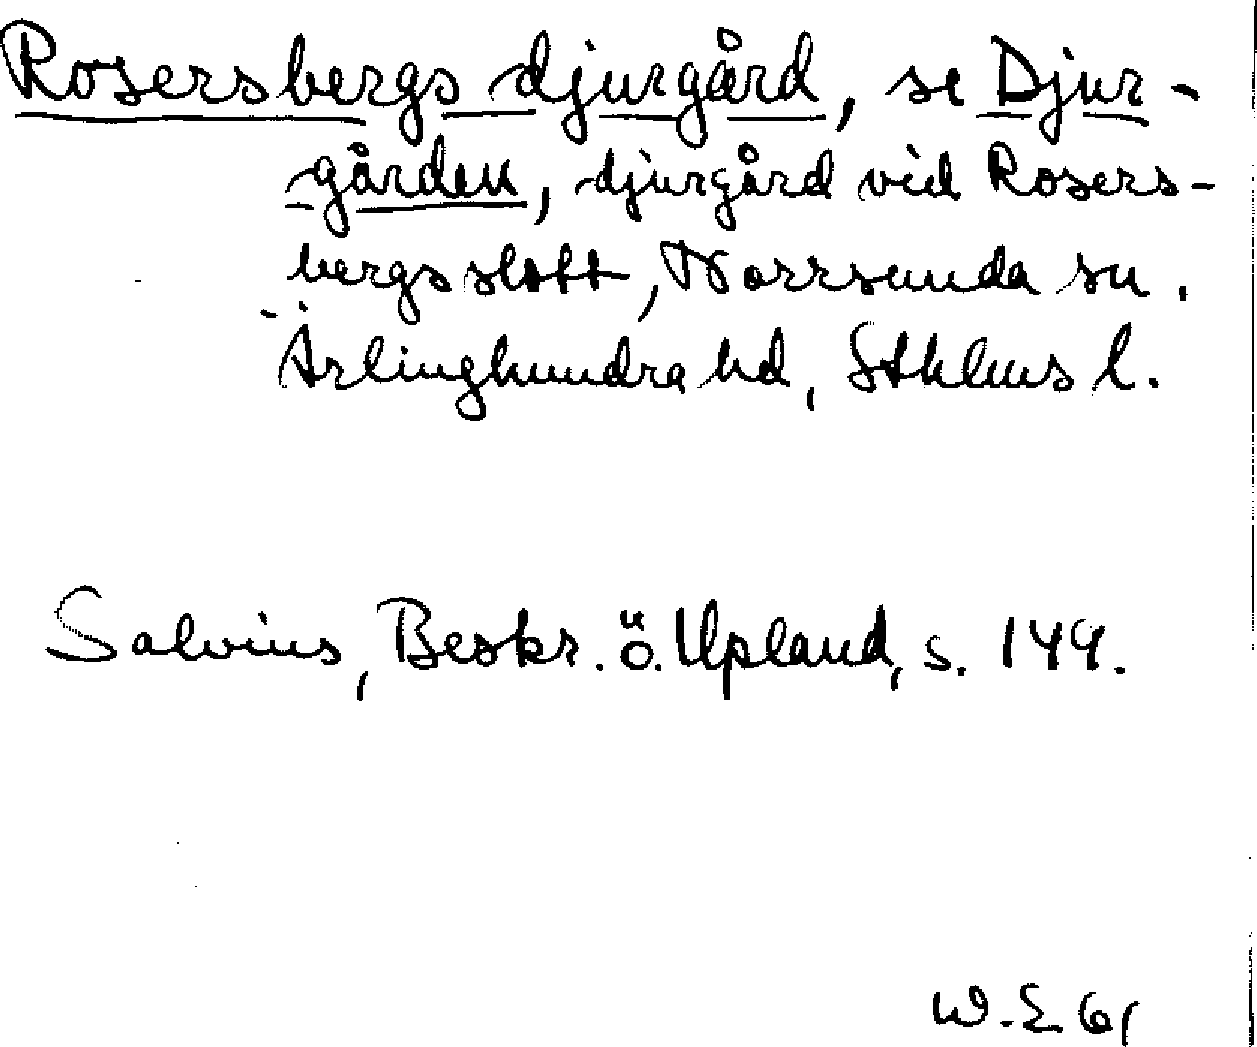 Rosersbergs djurgård, se Djur-
gården, djurgård vid Rosers-
bergs slott, Norrsunda sn.
Ärlinghundra hd, Sthlms l.
Salvius, Beskr. ö. Upland, s. 149.
W. E 61